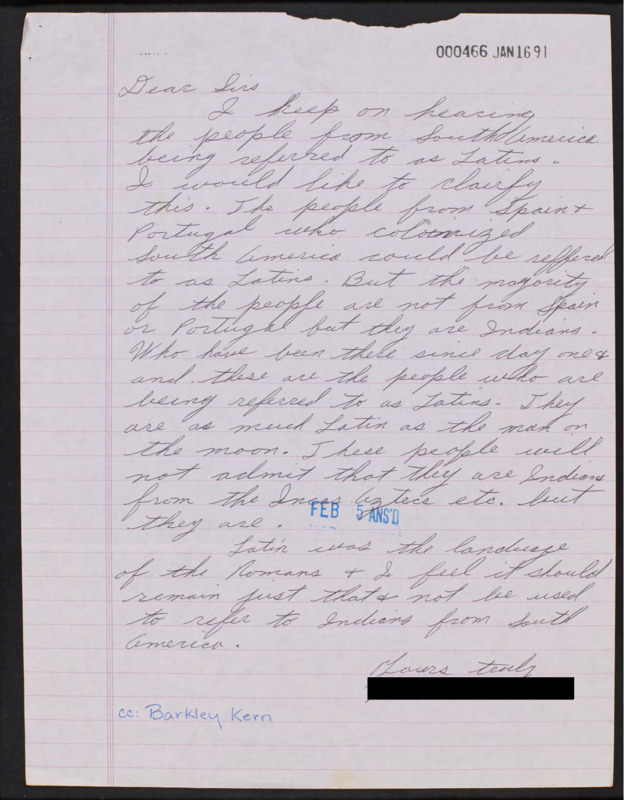 000466 JAN 16 91
Dear Sirs
I keep on hearing
the people from South America
being referred to as Latins.
I would like to clairfy
this. The people from Spain &
Portugal who colonized
South America could be reffered
to as Latins. But the majority
of the people are not from Spain
or Portugal but they are Indians.
Who have been there since day one &
and these are the people who are
being referred to as Latins. They
are as much Latin as the man on
the moon. These people will
not admit that they are Indians
from the Incas Aztecs etc. but
they are.
FEB 5 ANS'D
Latin was the landuage
of the Romans & I feel it should
remain just that & not be used
to refer to Indians from South
America.
Yours truly
cc: Barkley Kern